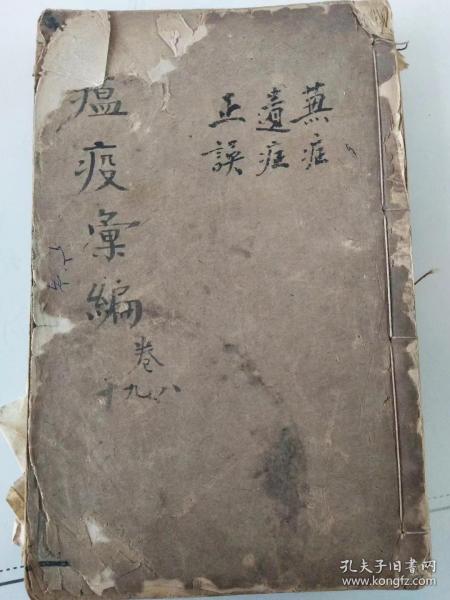 兼症
遺症
正誤
瘟疫彙編
卷
八九十
孔夫子旧书网
www.kongfz.com